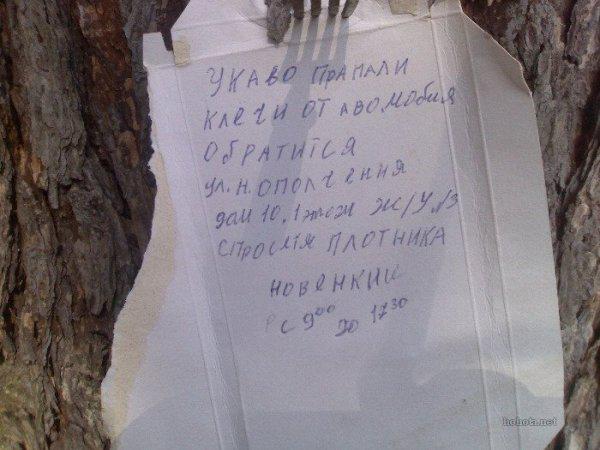 УКАВО ПРАПАЛИ
КЛЕЧИ ОТ АВОМОБИЯ
ОБРАТИТСЯ
УЛ. Н. ОПОЛЧЕНИЯ
ДОМ 10. 1 ЭТОЖ Ж/У №3
СПРОСИТЯ ПЛОТНИКА
НОВЕНКИИ
С 9 00 ДО 17 30
hohota.net